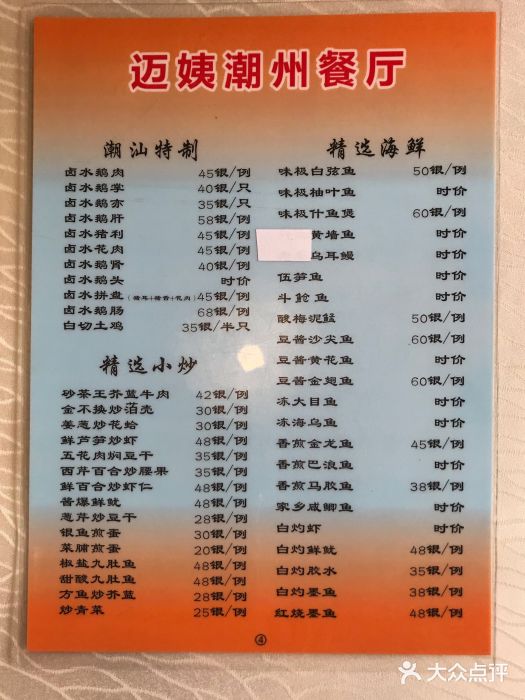 迈姨潮州餐厅
潮汕特制
卤水鹅肉 45银/例
卤水鹅掌 40银/只
卤水鹅亦 35银/只
卤水鹅肝 58银/例
卤水猪利 45银/例
卤水花肉 45银/例
卤水鹅肾 40银/例
卤水鹅头 时价
卤水拼盘(猪耳+猪香+花肉) 45银/例
卤水鹅肠 68银/例
白切土鸡 35银/半只
精选小炒
砂茶王芥蓝牛肉 42银/例
金不换炒萡壳 30银/例
姜葱炒花蛤 30银/例
鲜芦笋炒虾 48银/例
五花肉焖豆干 35银/例
西芹百合炒腰果 35银/例
鲜百合炒虾仁 48银/例
酱爆鲜鱿 48银/例
葱芹炒豆干 28银/例
银鱼煎蛋 30银/例
菜脯煎蛋 20银/例
椒盐九肚鱼 48银/例
甜酸九肚鱼 48银/例
方鱼炒芥蓝 28银/例
炒青菜 25银/例
精选海鲜
味极白弦鱼 50银/例
味极柚叶鱼 时价
味极什鱼煲 60银/例
黄墙鱼 时价
乌耳鳗 时价
伍笋鱼 时价
斗鲳鱼 时价
酸梅泥鯭 50银/例
豆酱沙尖鱼 60银/例
豆酱黄花鱼 时价
豆酱金翅鱼 60银/例
冻大目鱼 时价
冻海乌鱼 时价
香煎金龙鱼 45银/例
香煎巴浪鱼 时价
香煎马胶鱼 38银/例
家乡咸鲫鱼 时价
白灼虾 时价
白灼鲜鱿 48银/例
白灼胶水 35银/例
白灼墨鱼 38银/例
红烧墨鱼 48银/例
④
大众点评